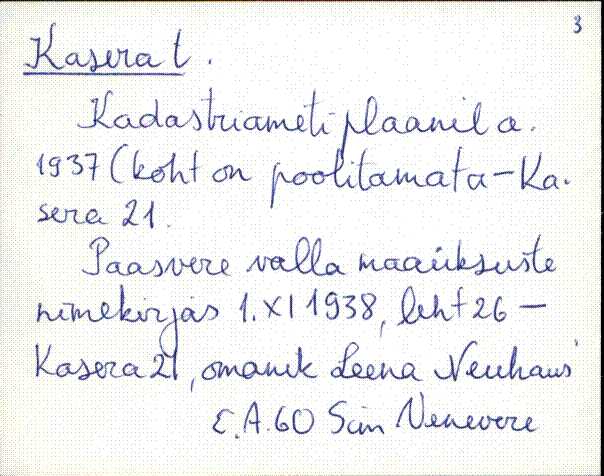 3
Kasera t.
Kadastriameti plaanil a.
1937 (koht on poolitamata - Ka-
sera 21.
Paasvere valla maaüksuste
nimekirjas 1.XI 1938, leht 26 -
Kasera 21, omanik Leena Neuhaus
E.A. 60 Sim Venevere